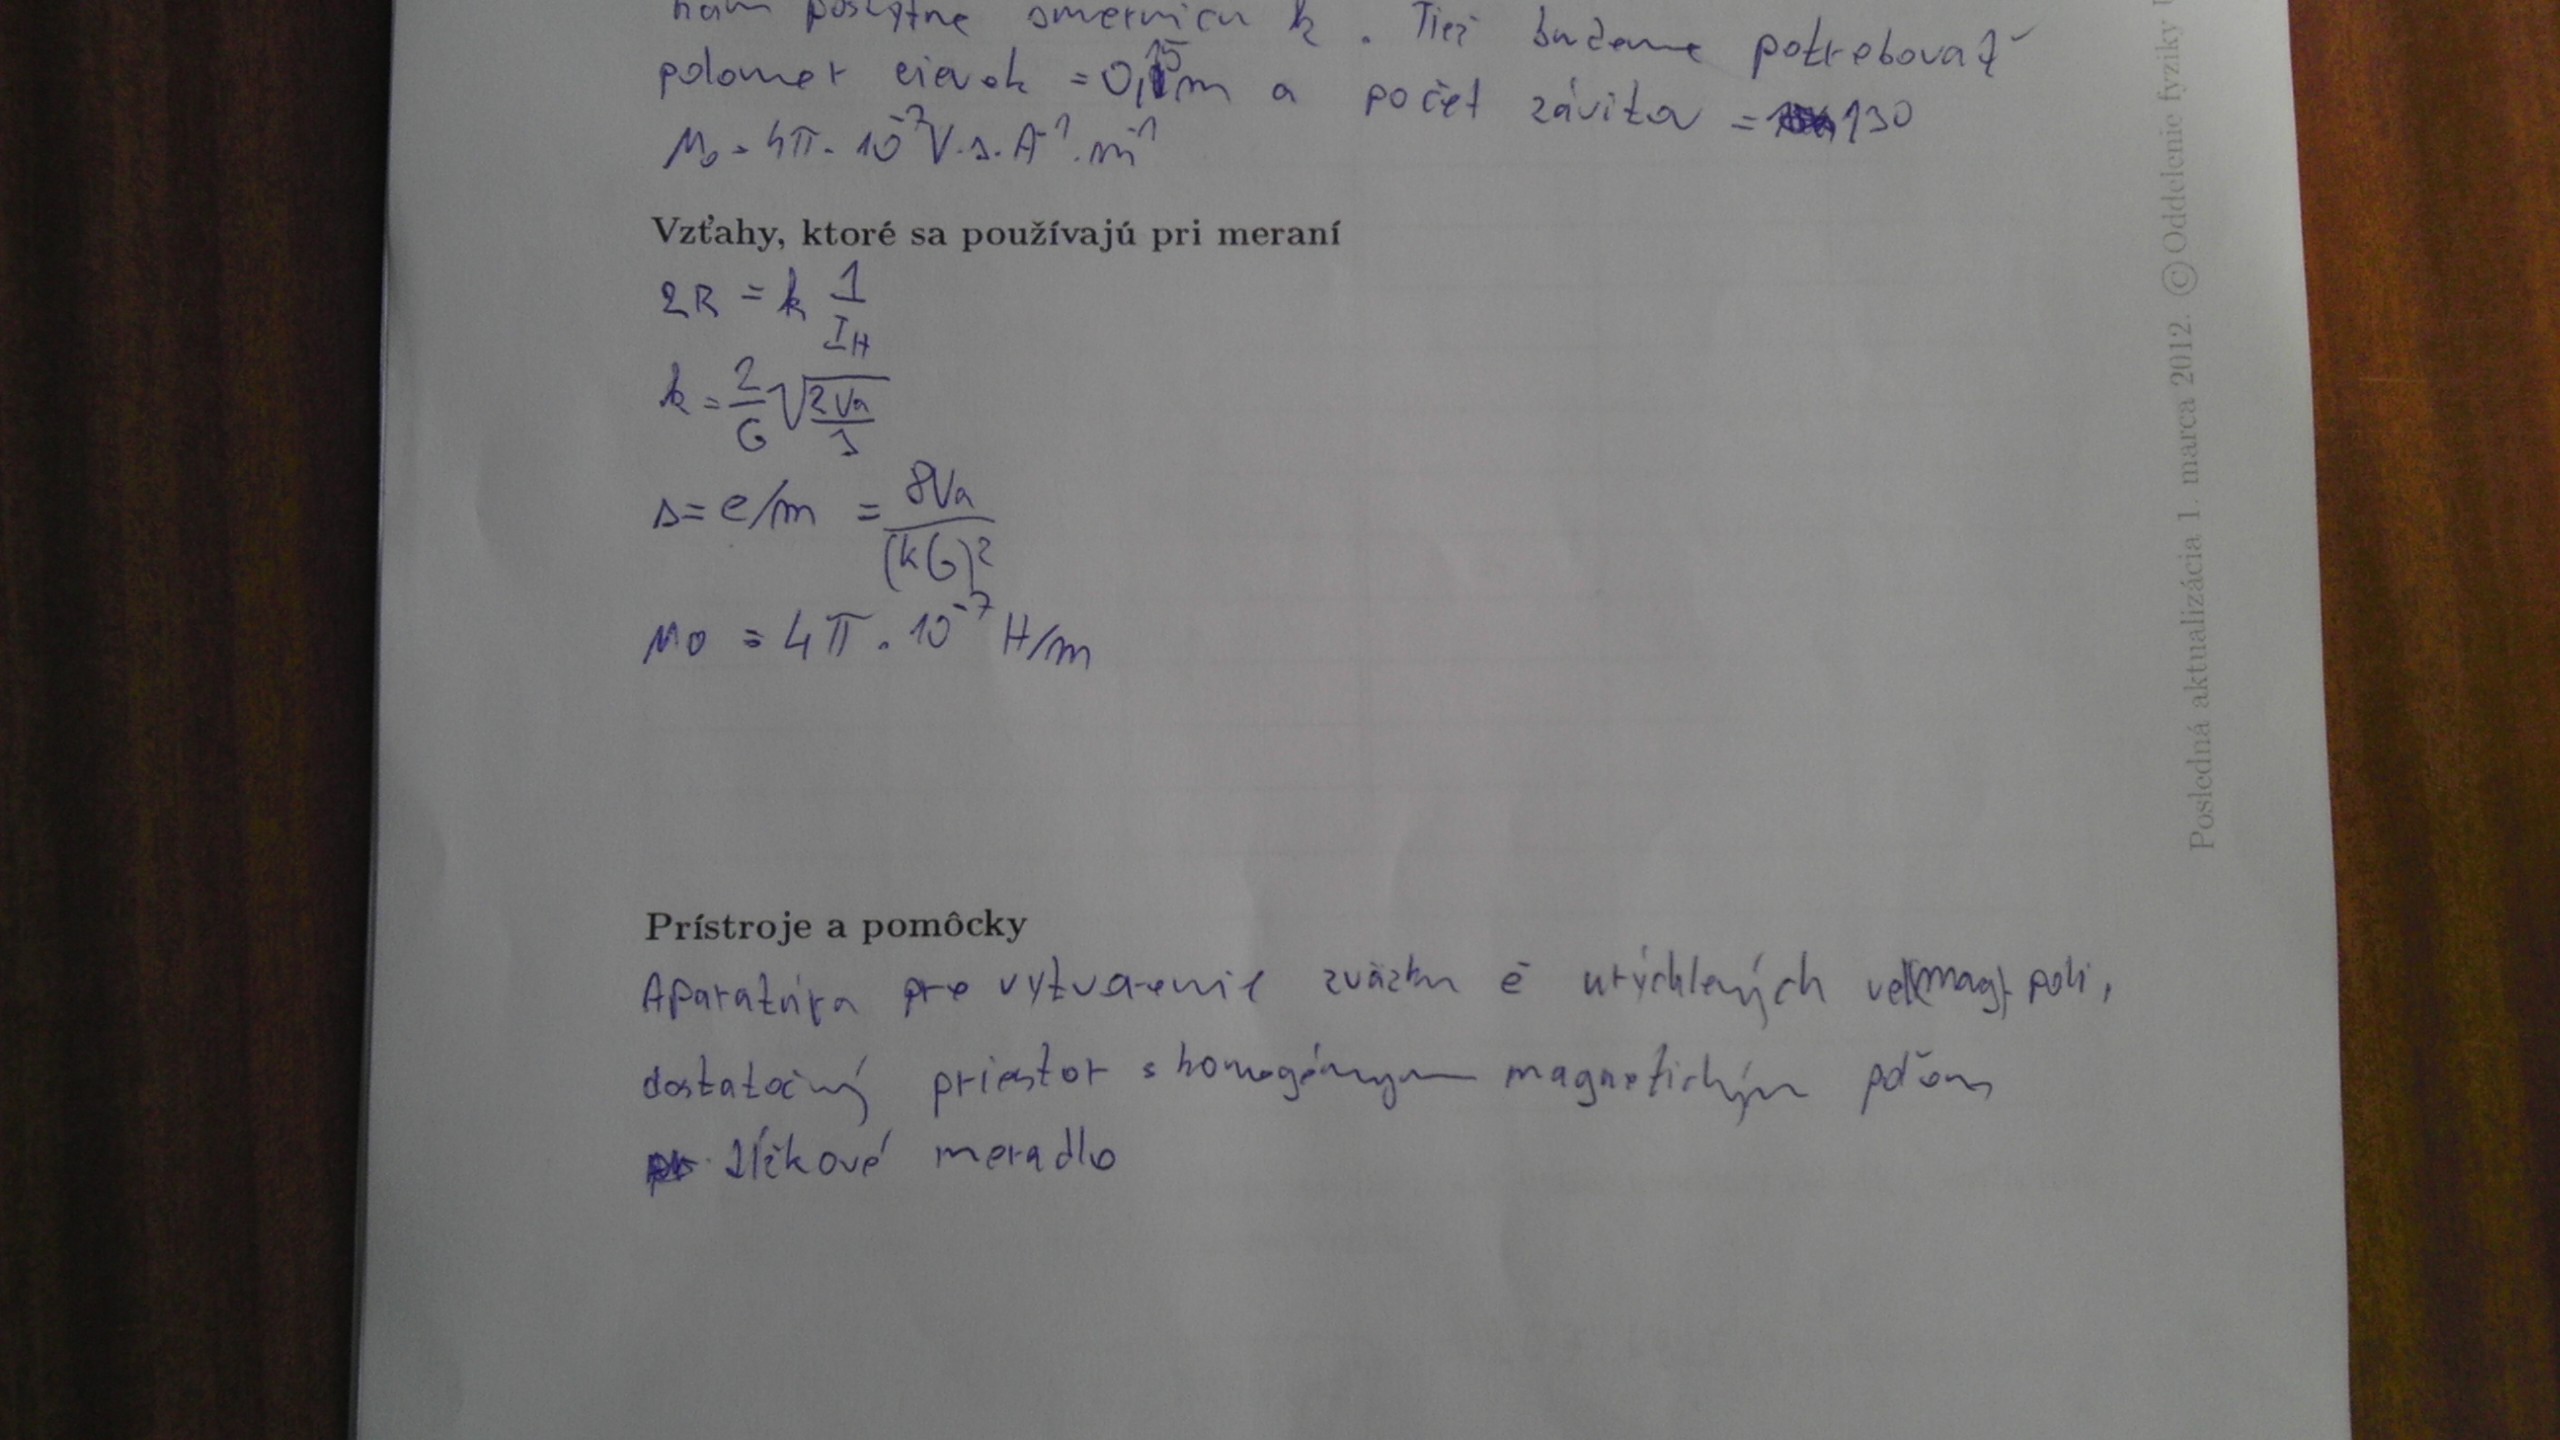 nám poskytne smernicu k. Tiež budeme potrebovať
polomer cievok = 0,15m a počet závitov = 130
μ₀ = 4π · 10⁻⁷ V.s.A⁻¹.m⁻¹
Vzťahy, ktoré sa používajú pri meraní
2R = k 1/I_H
k = 2/G √(2Va/s)
s = e/m = 8Va/(kG)²
μ₀ = 4π . 10⁻⁷ H/m
Prístroje a pomôcky
Aparatúra pre vytvorenie zväzku e⁻ urýchlených (mag) poli,
dostatočný priestor s homogénnym magnetickým poľom,
dĺžkové meradlo
Posledná aktualizácia 1. marca 2012. © Oddelenie fyziky